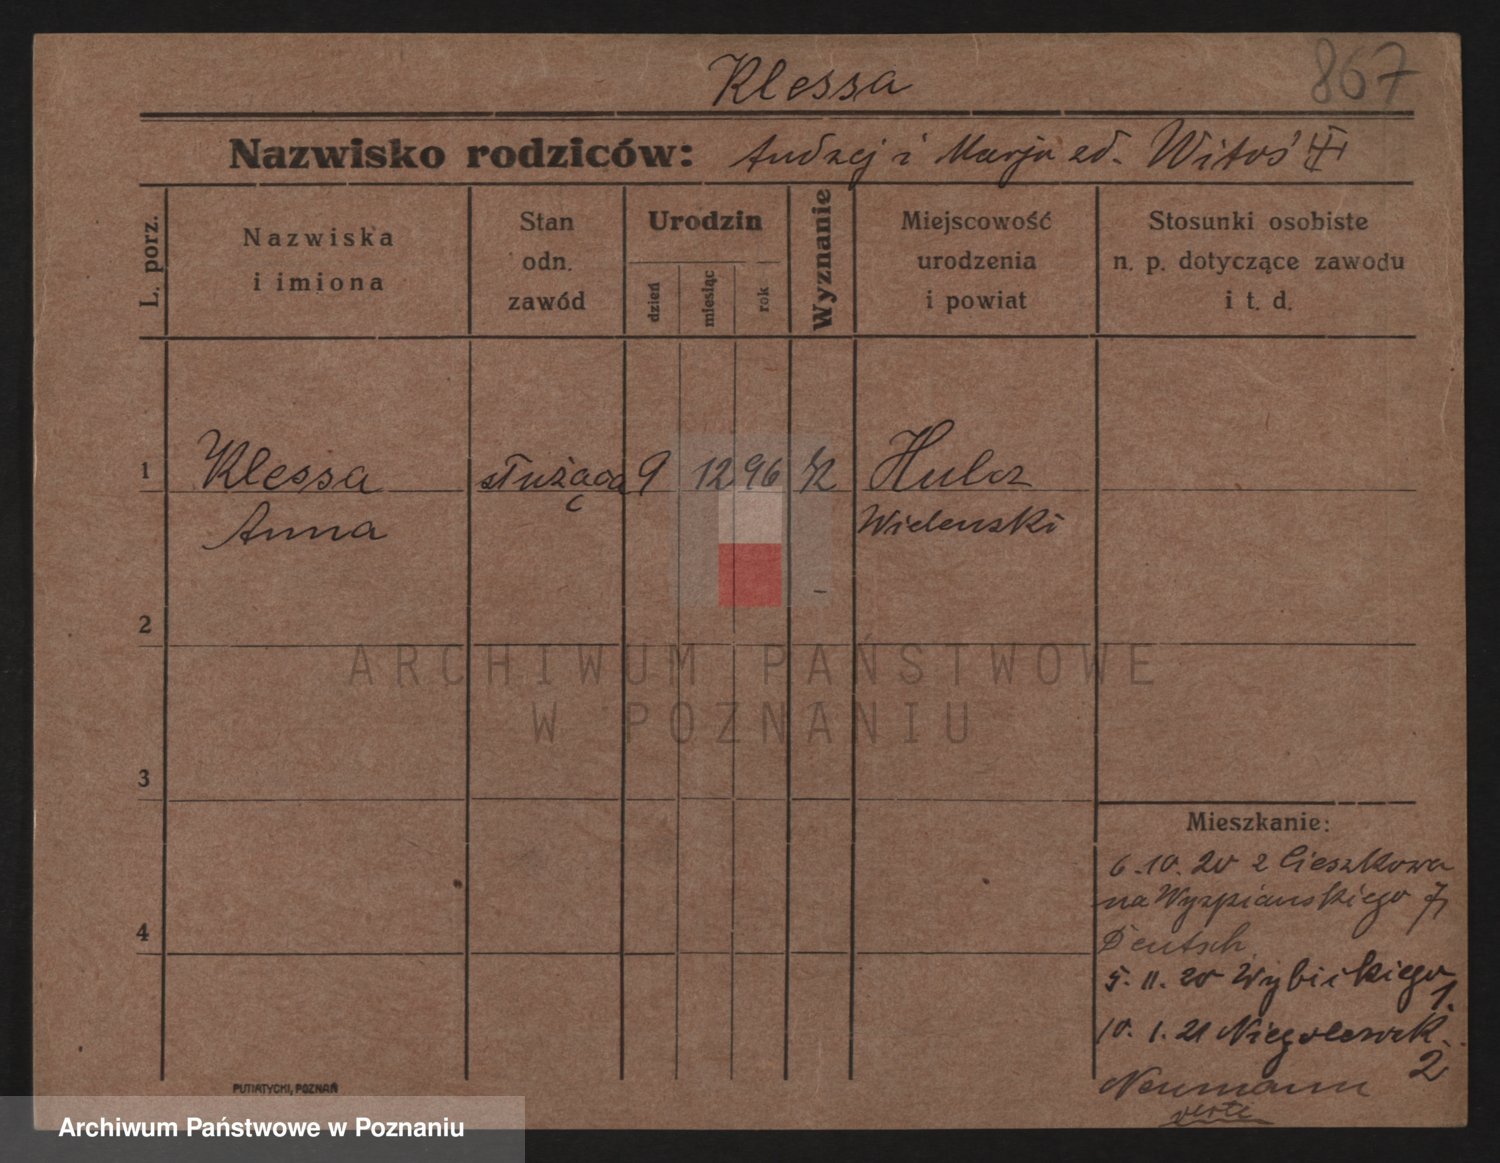 Klessa 867
Nazwisko rodziców: Andrzej i Marja zd. Witoś
L. porz.
Nazwiska
i imiona
Stan
odn.
zawód
Urodzin
dzień
miesiąc
rok
Wyznanie
Miejscowość
urodzenia
i powiat
Stosunki osobiste
n. p. dotyczące zawodu
i t. d.
1 Klessa służąca 9 12 96
Anna Wielenski
2
3
4
ARCHIWUM PAŃSTWOWE
W POZNANIU
Mieszkanie:
6.10.20 z Cieszkowa
na Wyspianskiego 7
Deutsch
5.11.20 Wybickiego
1.
10.1.21 Niegolewsk.
2
Neumann
verte
PUTIATYCKI, POZNAŃ
Archiwum Państwowe w Poznaniu